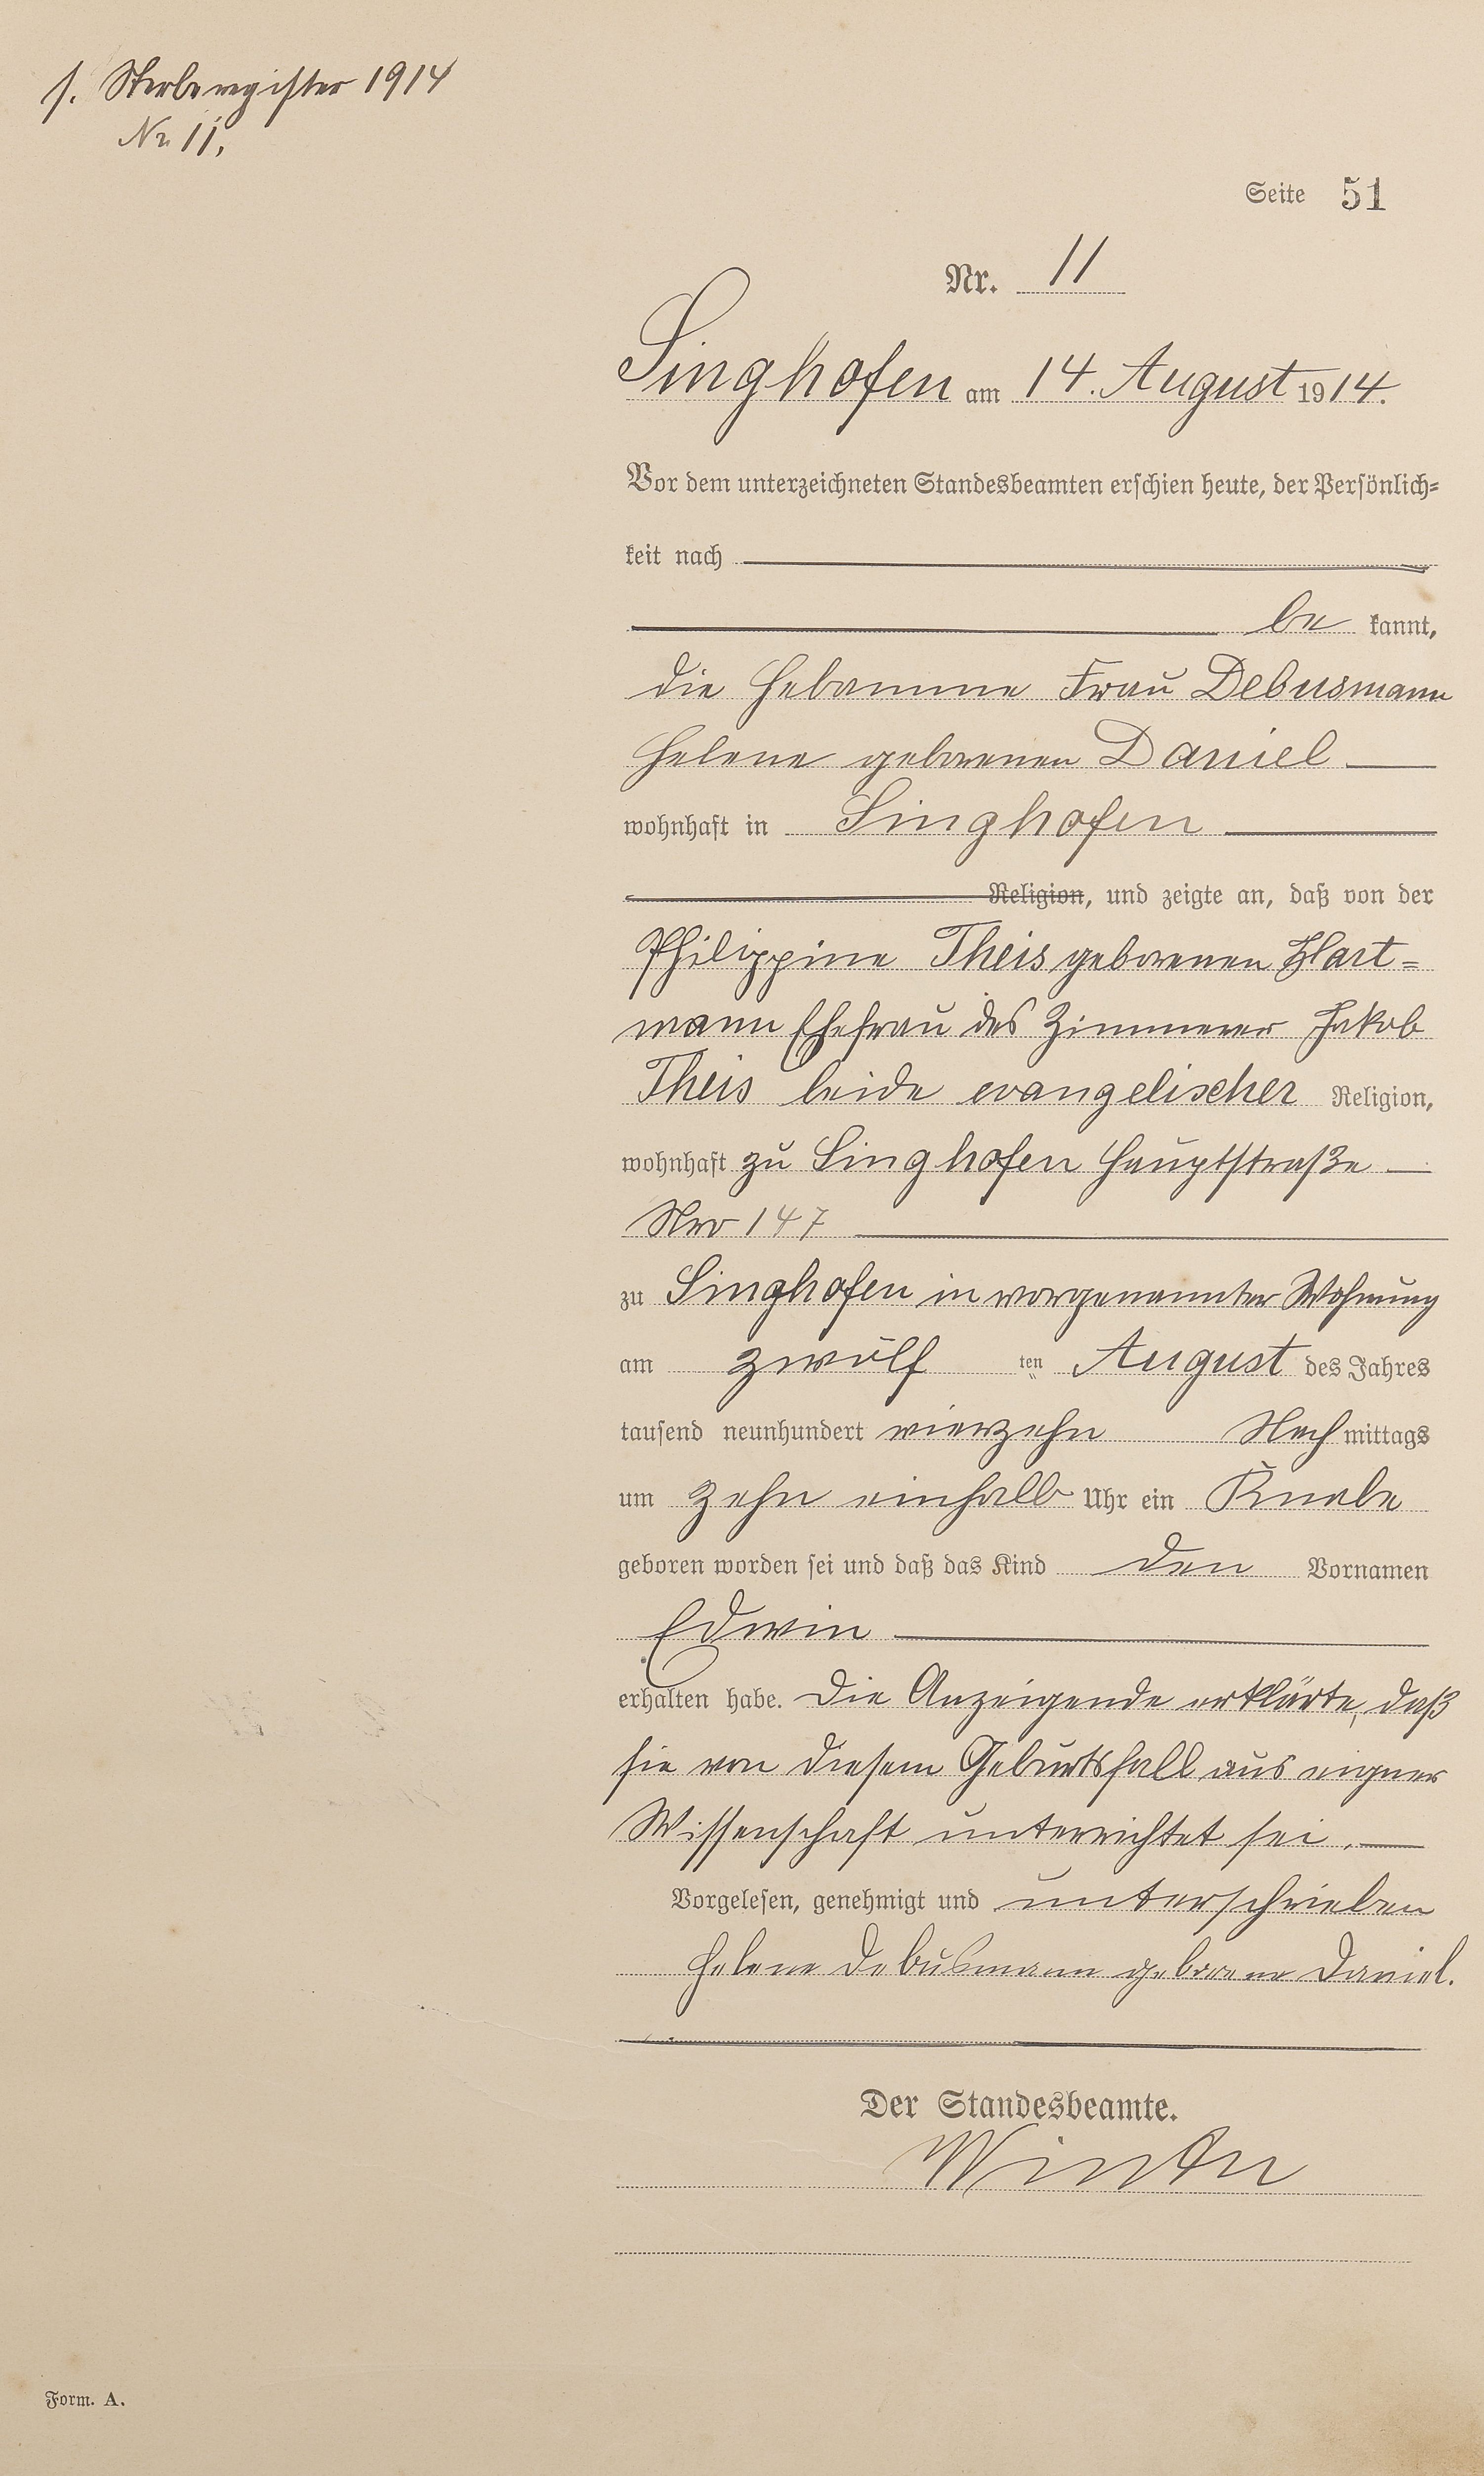 s. Sterberegister 1914
Nr. 11.
Seite 51
Nr. 11
Singhofen am 14. August 1914.
Vor dem unterzeichneten Standesbeamten erschien heute, der Persönlich=
keit nach
be kannt,
die Hebamme Frau Debusmann
Helene geborenen Daniel
wohnhaft in Singhofen
Religion, und zeigte an, daß von der
Philippine Theis geborenen Hart=
mann Ehefrau des Zimmerer Jakob
Theis beide evangelischer Religion,
wohnhaft zu Singhofen Hauptstraße
Nro 147
zu Singhofen in vorgenannter Wohnung
am zwölf ten August des Jahres
tausend neunhundert vierzehn Nach mittags
um zehn einhalb Uhr ein Knabe
geboren worden sei und daß das Kind den Vornamen
Edwin
erhalten habe. Die Anzeigende erklärte, daß
sie von diesem Geburtsfall aus eigner
Wissenschaft unterrichtet sei.
Vorgelesen, genehmigt und unterschrieben
Helene Debusmann geborene Daniel.
Der Standesbeamte.
Winter
Form. A.